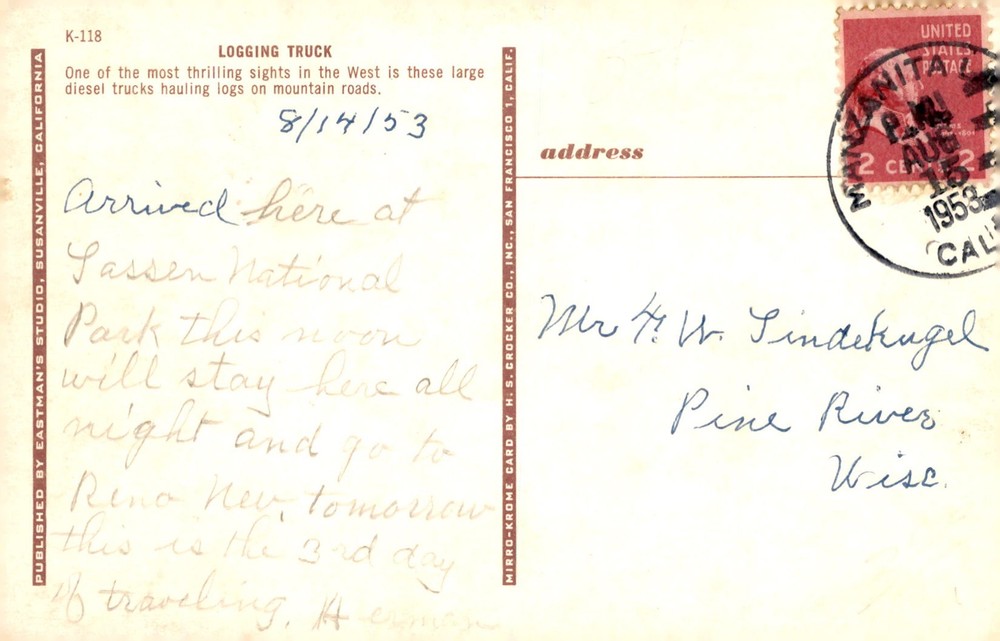 K-118
LOGGING TRUCK
One of the most thrilling sights in the West is these large
diesel trucks hauling logs on mountain roads.
8/14/53
Arrived here at
Lassen National
Park this noon
will stay here all
night and go to
Reno Nev. tomorrow
this is the 3rd day
of traveling. Herman
PUBLISHED BY EASTMAN'S STUDIO, SUSANVILLE, CALIFORNIA
MIRRO-KROME CARD BY H. S. CROCKER CO., INC., SAN FRANCISCO 1, CALIF.
address
UNITED
STATES
POSTAGE
2 CENTS 2
MANZANITA
P.M.
AUG
15
1953
CALIF
Mr H. W. Lindekugel
Pine River
Wisc.